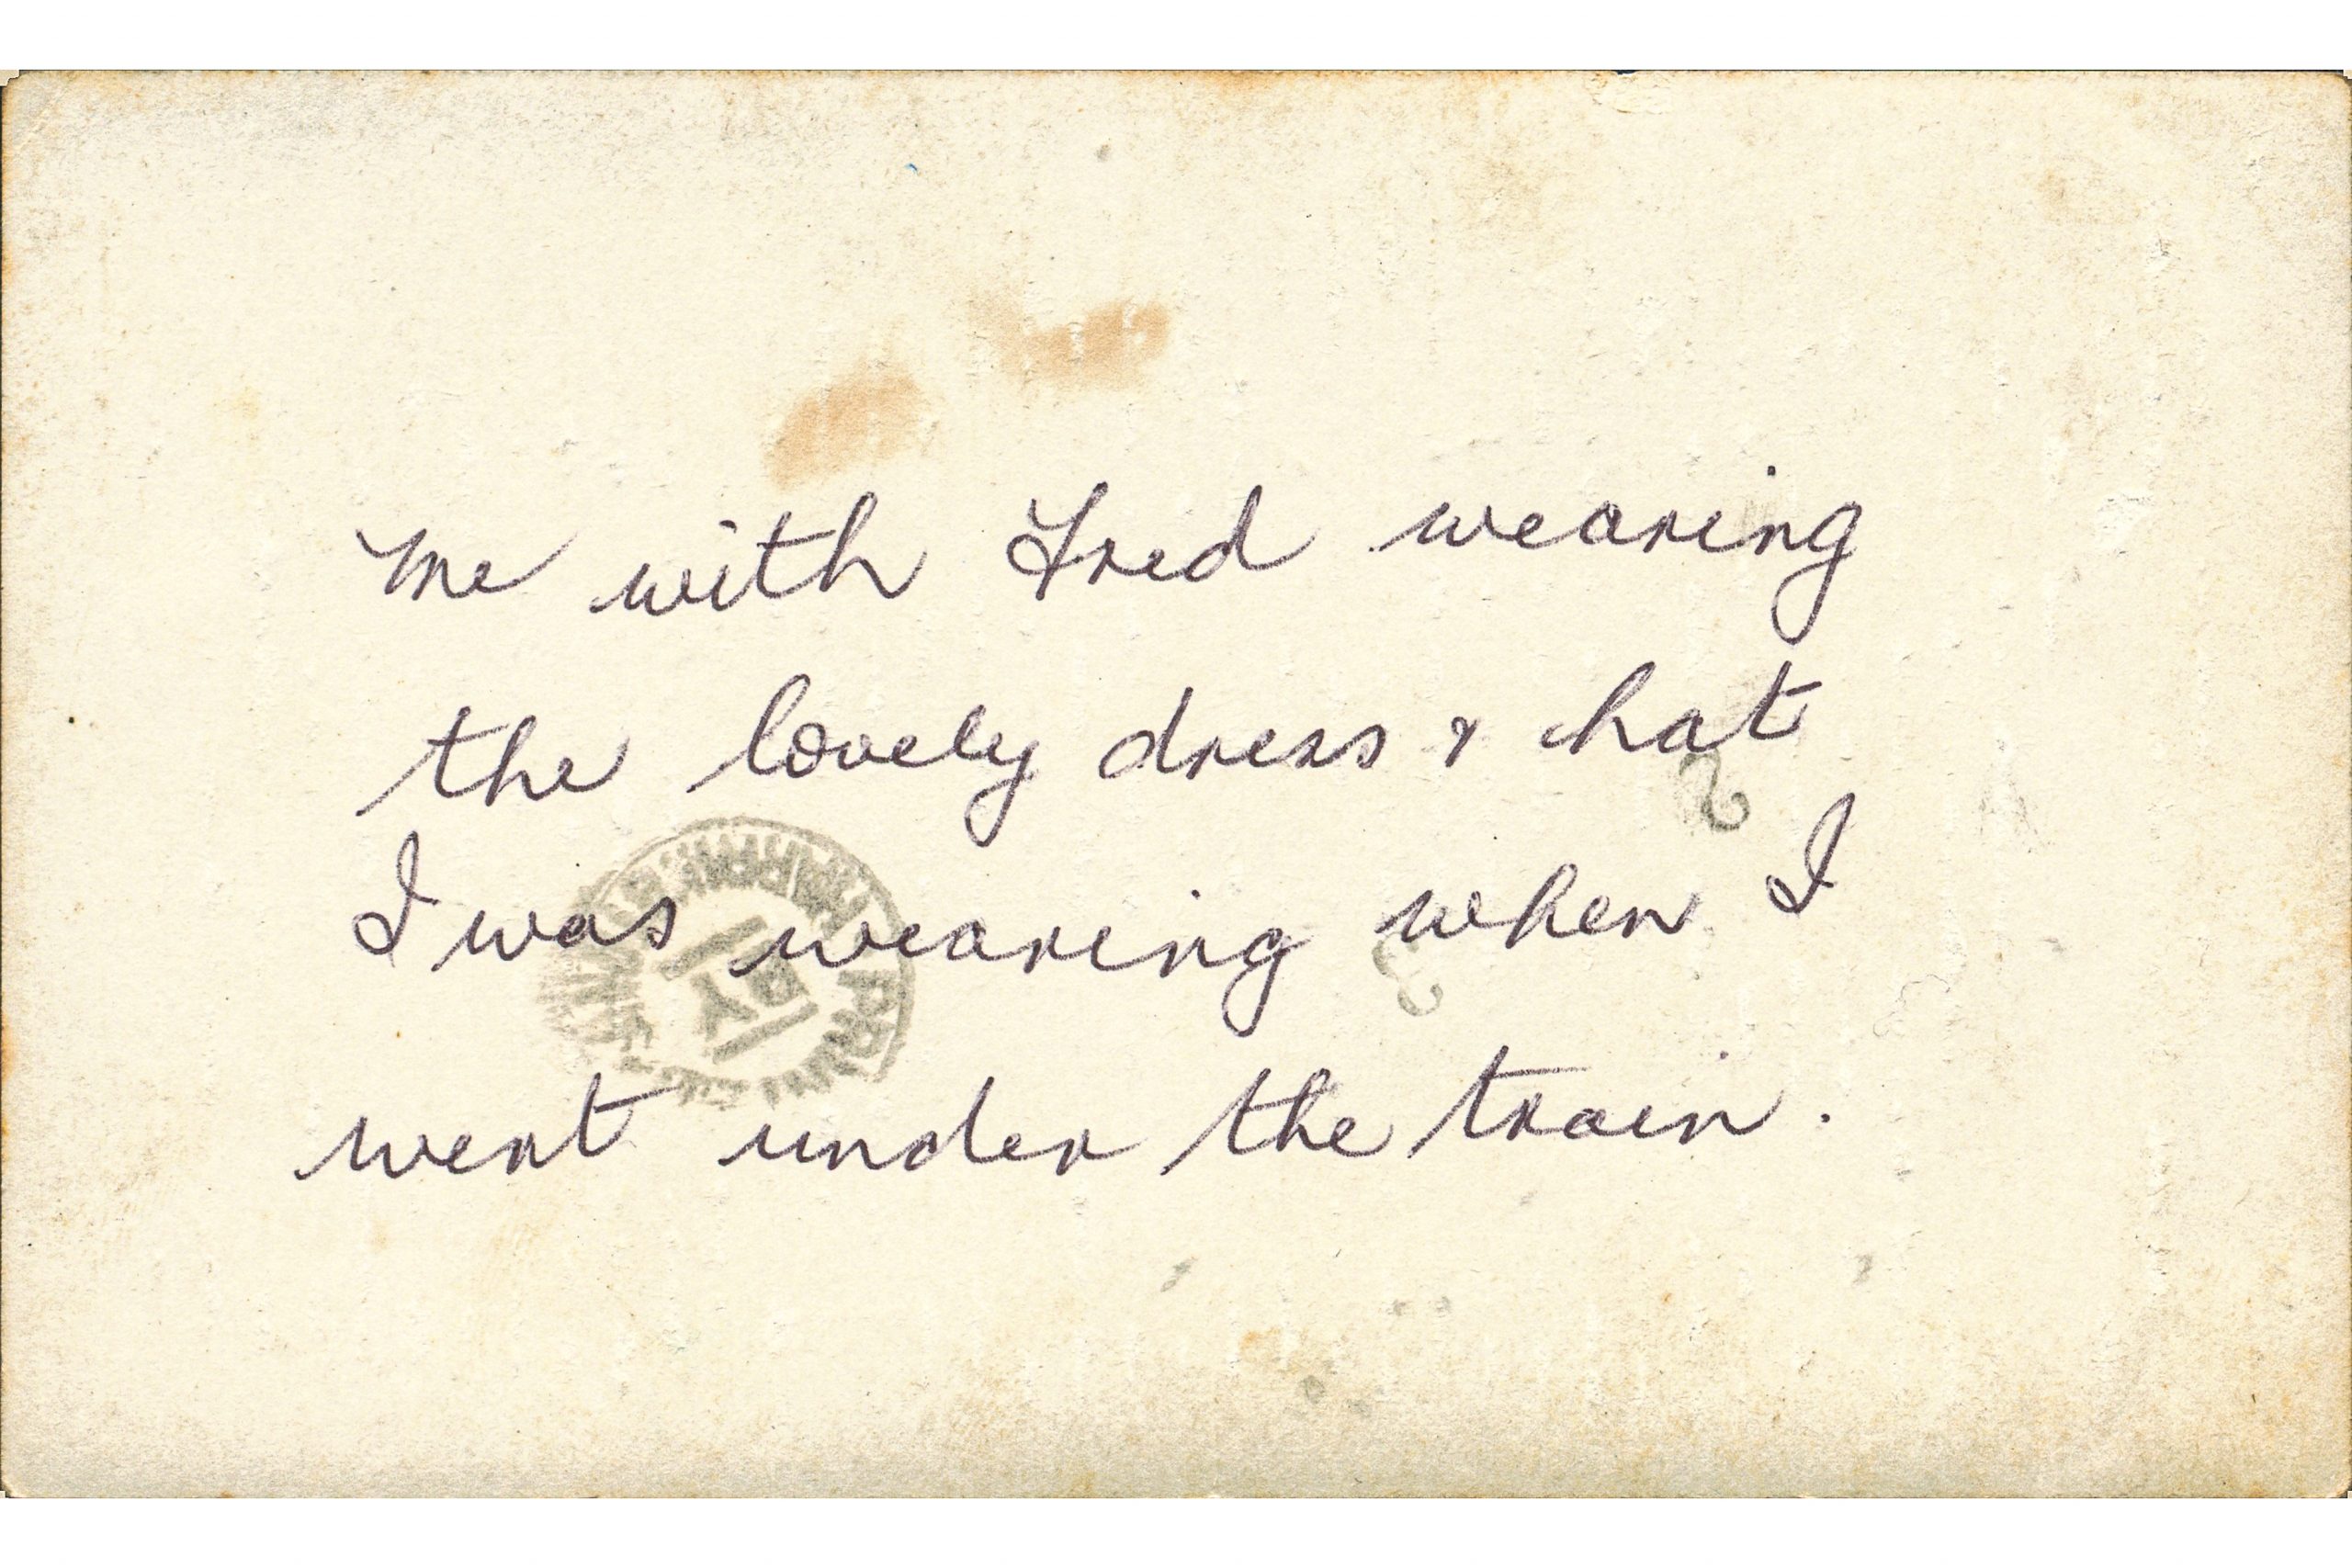 Me with Fred wearing
the lovely dress & hat
I was wearing when I
went under the train.